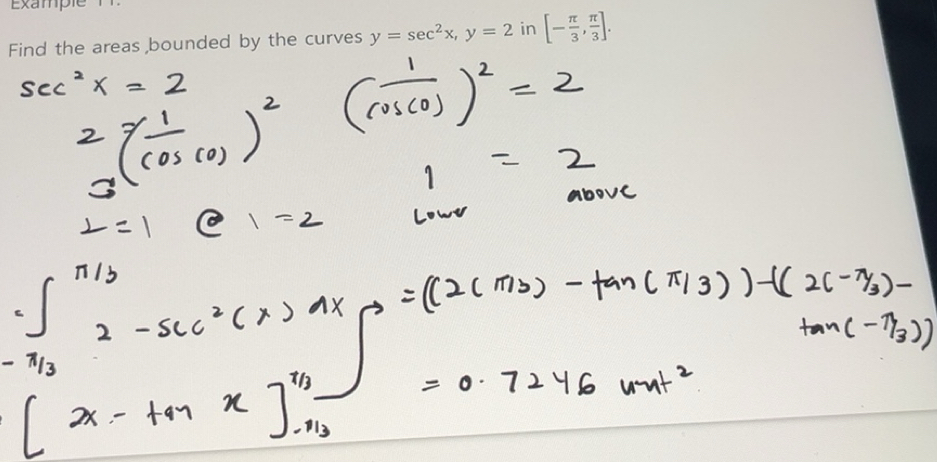 Example 11.
Find the areas bounded by the curves y = sec²x, y = 2 in [-π/3, π/3].
sec² x = 2
(1/cos(0))² = 2
2 = (1/cos(0))²
1 = 2
Lower above
2=1 @ 1=2
= ∫_{-π/3}^{π/3} 2 - sec²(x) dx
= ((2(π/3) - tan(π/3)) - ((2(-π/3) -
tan(-π/3))
[2x - tan x]_{-π/3}^{π/3}
= 0.7246 unit²